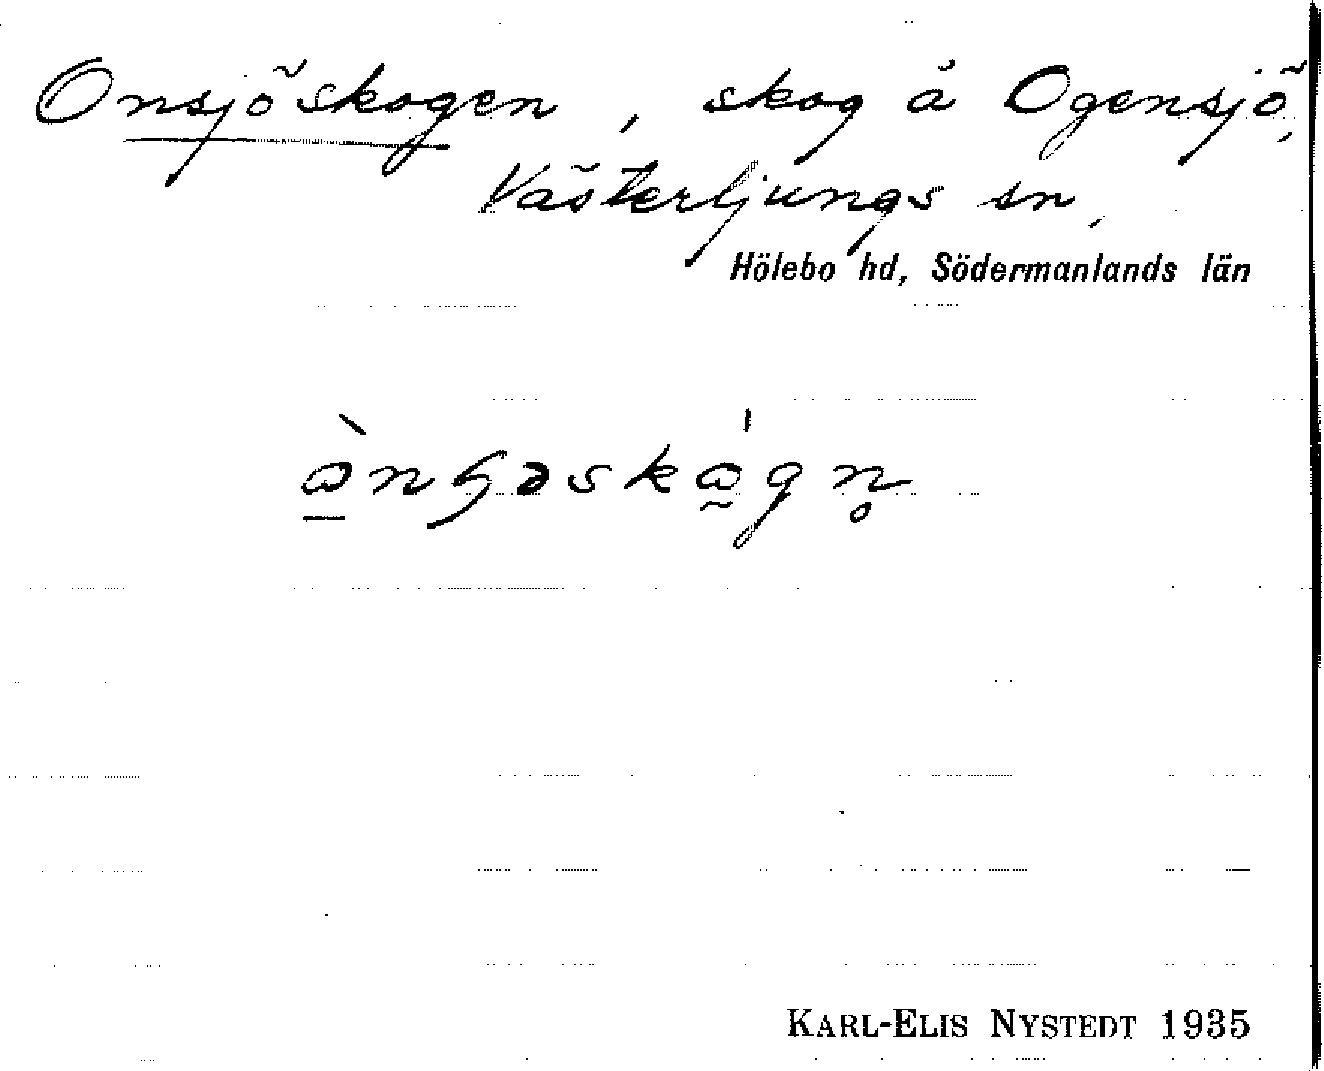 Onsjöskogen, skog å Ogensjö,
Västerljungs sn,
Hölebo hd, Södermanlands län
KARL-ELIS NYSTEDT 1935